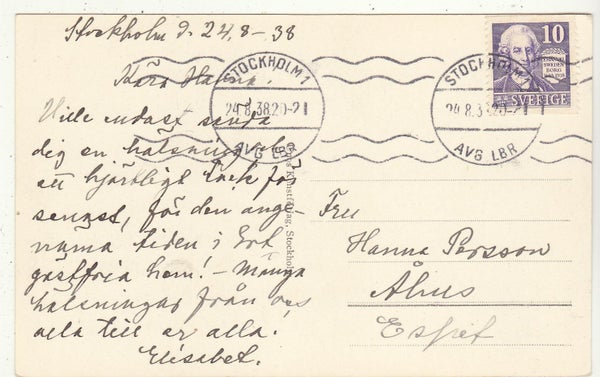 Stockholm d. 24.8-38
Kära Hanna.
Ville endast sända
dig en hälsning och
ett hjärtligt tack för
senast, för den ange-
näma tiden i Ert
gästfria hem! - Många
hälsningar från oss
alla till er alla.
Elisabet.
STOCKHOLM 1
24.8.38.20-21
AVG LBR
STOCKHOLM 1
24.8.38.20-21
AVG LBR
10
SWEDEN
BORG
SVERIGE
Konstförlag, Stockholm
Fru
Hanna Persson
Åhus
Espet